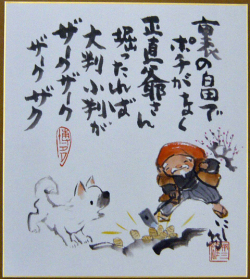 裏の畠で
ポチがなく
正直爺さん
掘ったれば
大判小判が
ザークザーク
ザークザク